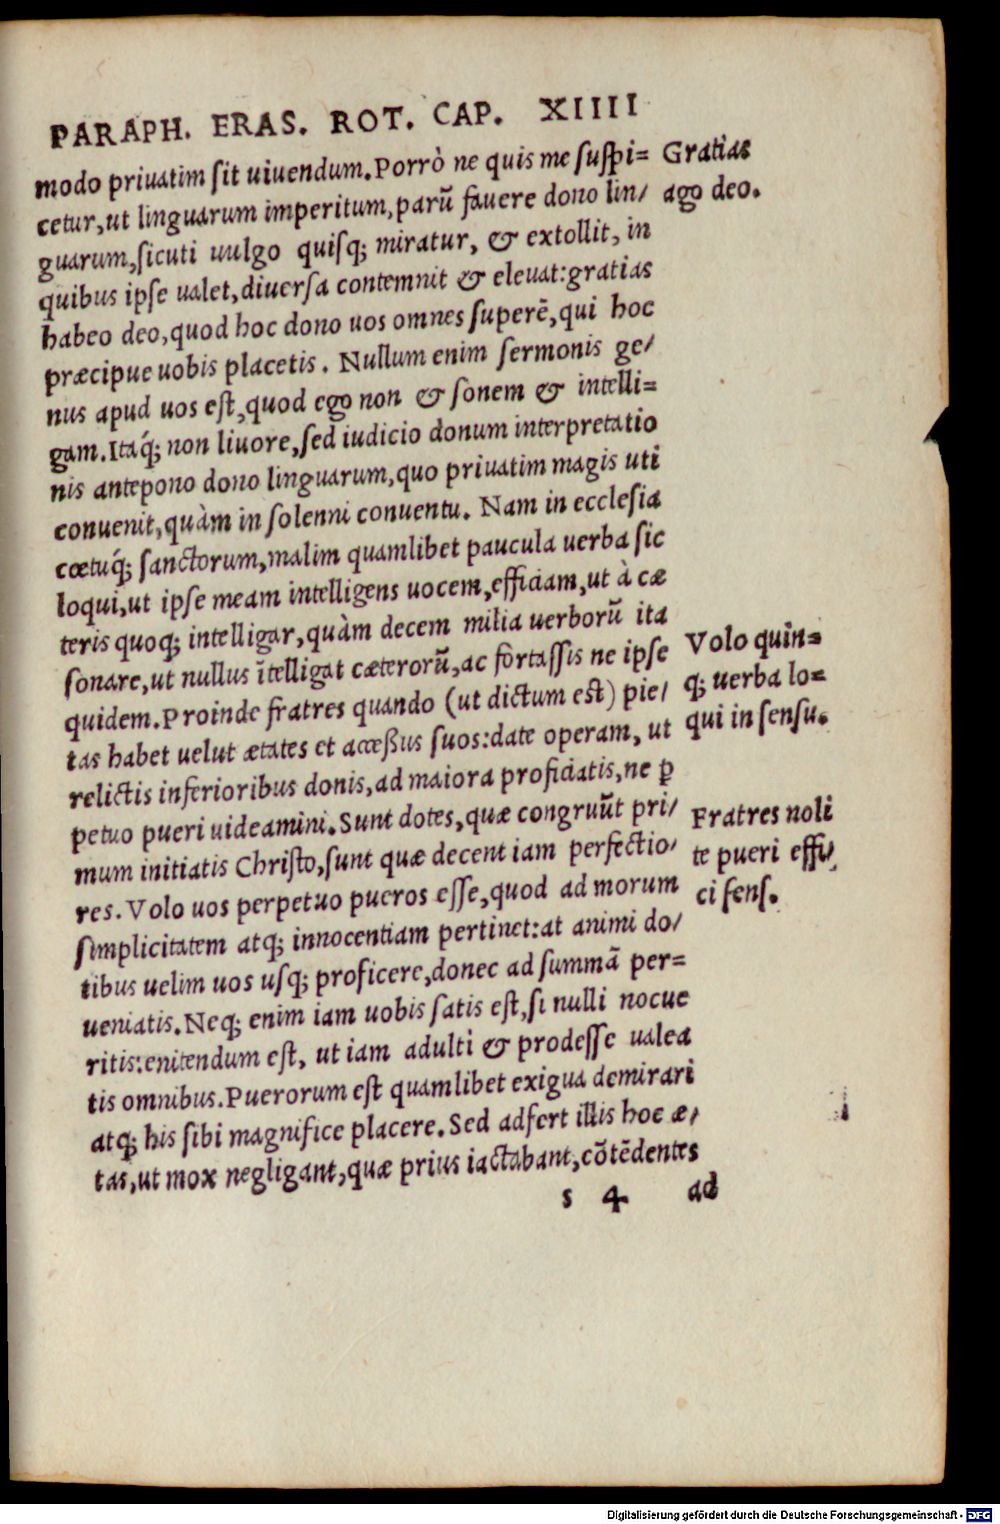 PARAPH. ERAS. ROT. CAP. XIIII
modo priuatim sit uiuendum. Porrò ne quis me suspi=
cetur, ut linguarum imperitum, parū fauere dono lin/
guarum, sicuti uulgo quisq; miratur, & extollit, in
quibus ipse ualet, diuersa contemnit & eleuat: gratias
habeo deo, quod hoc dono uos omnes superē, qui hoc
præcipue uobis placetis. Nullum enim sermonis ge/
nus apud uos est, quod ego non & sonem & intelli=
gam. Itaq́; non liuore, sed iudicio donum interpretatio
nis antepono dono linguarum, quo priuatim magis uti
conuenit, quàm in solenni conuentu. Nam in ecclesia
cœtuq́; sanctorum, malim quamlibet paucula uerba sic
loqui, ut ipse meam intelligens uocem, efficiam, ut à cæ
teris quoq; intelligar, quàm decem milia uerborū ita
sonare, ut nullus ītelligat cæterorū, ac fortassis ne ipse
quidem. Proinde fratres quando (ut dictum est) pie/
tas habet uelut ætates et acceßus suos: date operam, ut
relictis inferioribus donis, ad maiora proficiatis, ne ꝑ
petuo pueri uideamini. Sunt dotes, quæ congruūt pri/
mum initiatis Christo, sunt quæ decent iam perfectio/
res. Volo uos perpetuo pueros esse, quod ad morum
simplicitatem atq; innocentiam pertinet: at animi do/
tibus uelim uos usq; proficere, donec ad summā per=
ueniatis. Neq; enim iam uobis satis est, si nulli nocue
ritis: enitendum est, ut iam adulti & prodesse ualea
tis omnibus. Puerorum est quamlibet exigua demirari
atq; his sibi magnifice placere. Sed adfert illis hoc æ/
tas, ut mox negligant, quæ prius iactabant, cōtēdentes
s 4 ad
Gratias
ago deo.
Volo quin=
q; uerba lo=
qui in sensu.
Fratres noli
te pueri effi/
ci sens.
Digitalisierung gefördert durch die Deutsche Forschungsgemeinschaft - DFG